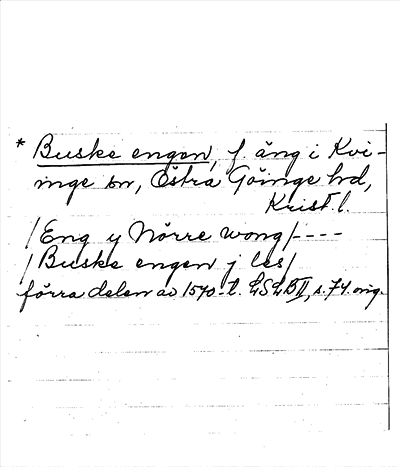 * Buske engen, f. äng i Kvi-
inge sn, Östra Göinge hd,
Krist. l.
/Eng y Nörre wong/----
/Buske engen j les/
förra delen av 1570-t. LSLB II, s. 74 orig.